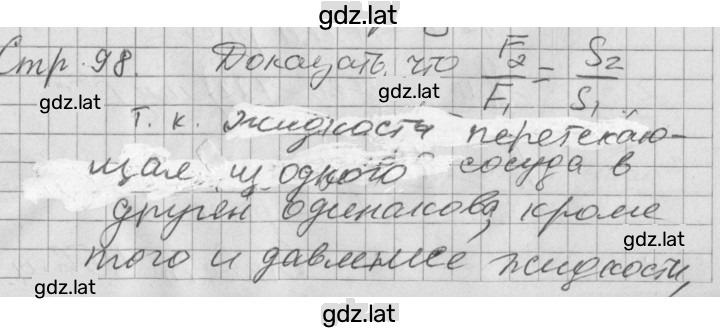 gdz.lat
Стр. 98. Доказать, что F₂/F₁ = S₂/S₁.
gdz.lat gdz.lat
т. к. жидкость перетекаю-
gdz.lat gdz.lat
щая из одного сосуда в
другей одинакова, кроме
gdz.lat gdz.lat
того и давление жидкости,
gdz.lat gdz.lat
gdz.lat